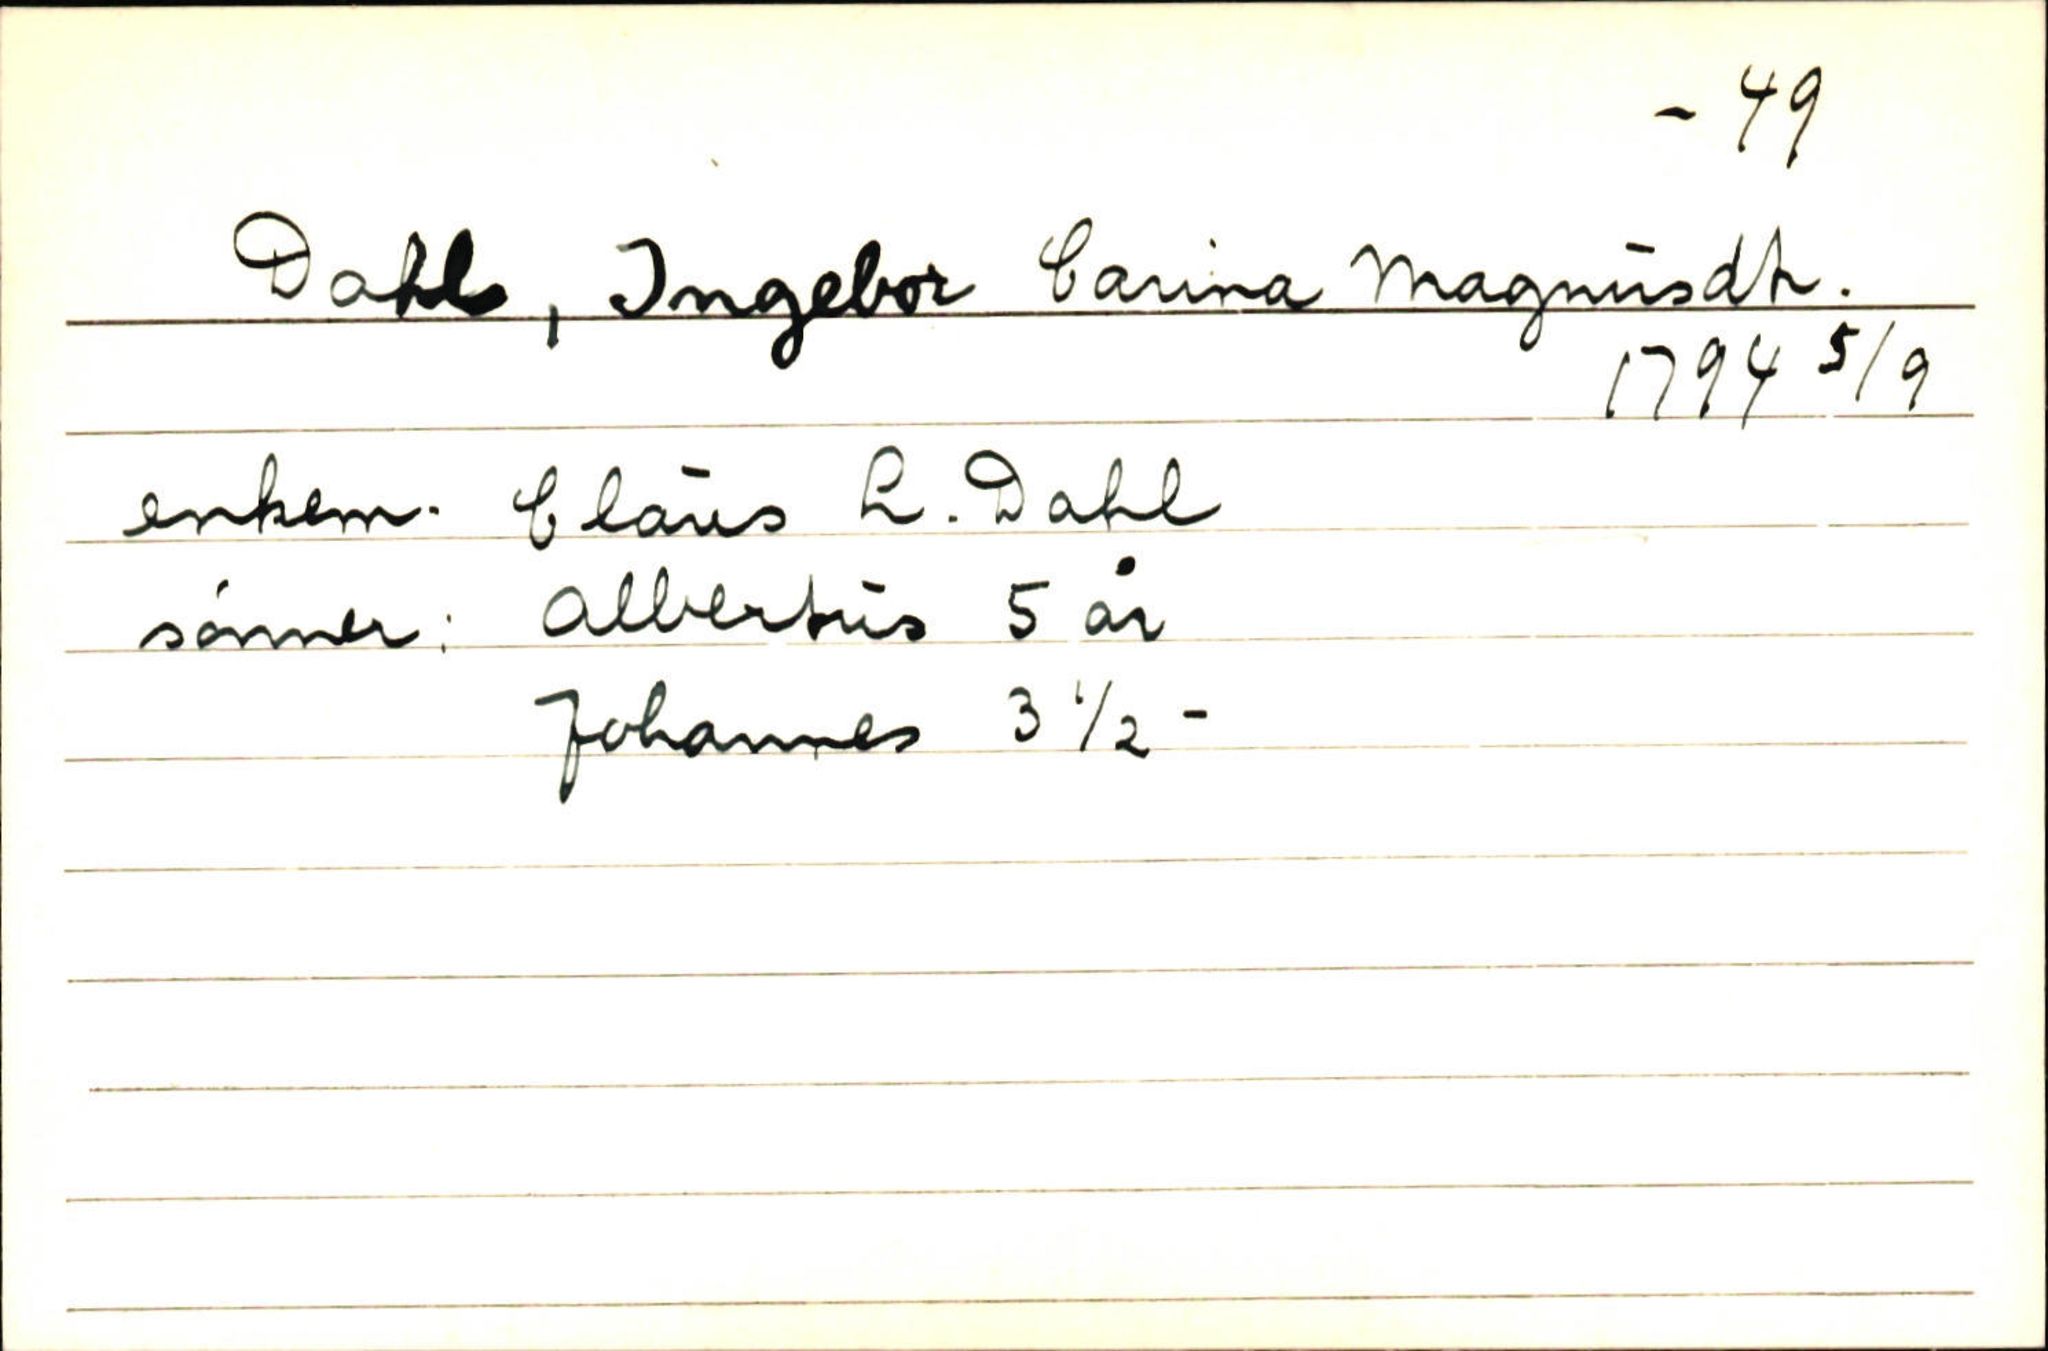 - 49
Dahls, Ingebor Carina Magnusdtr.
1794 5/9
enkem. Claus L. Dahl
sønner: Albertus 5 år
Johannes 3 1/2 -